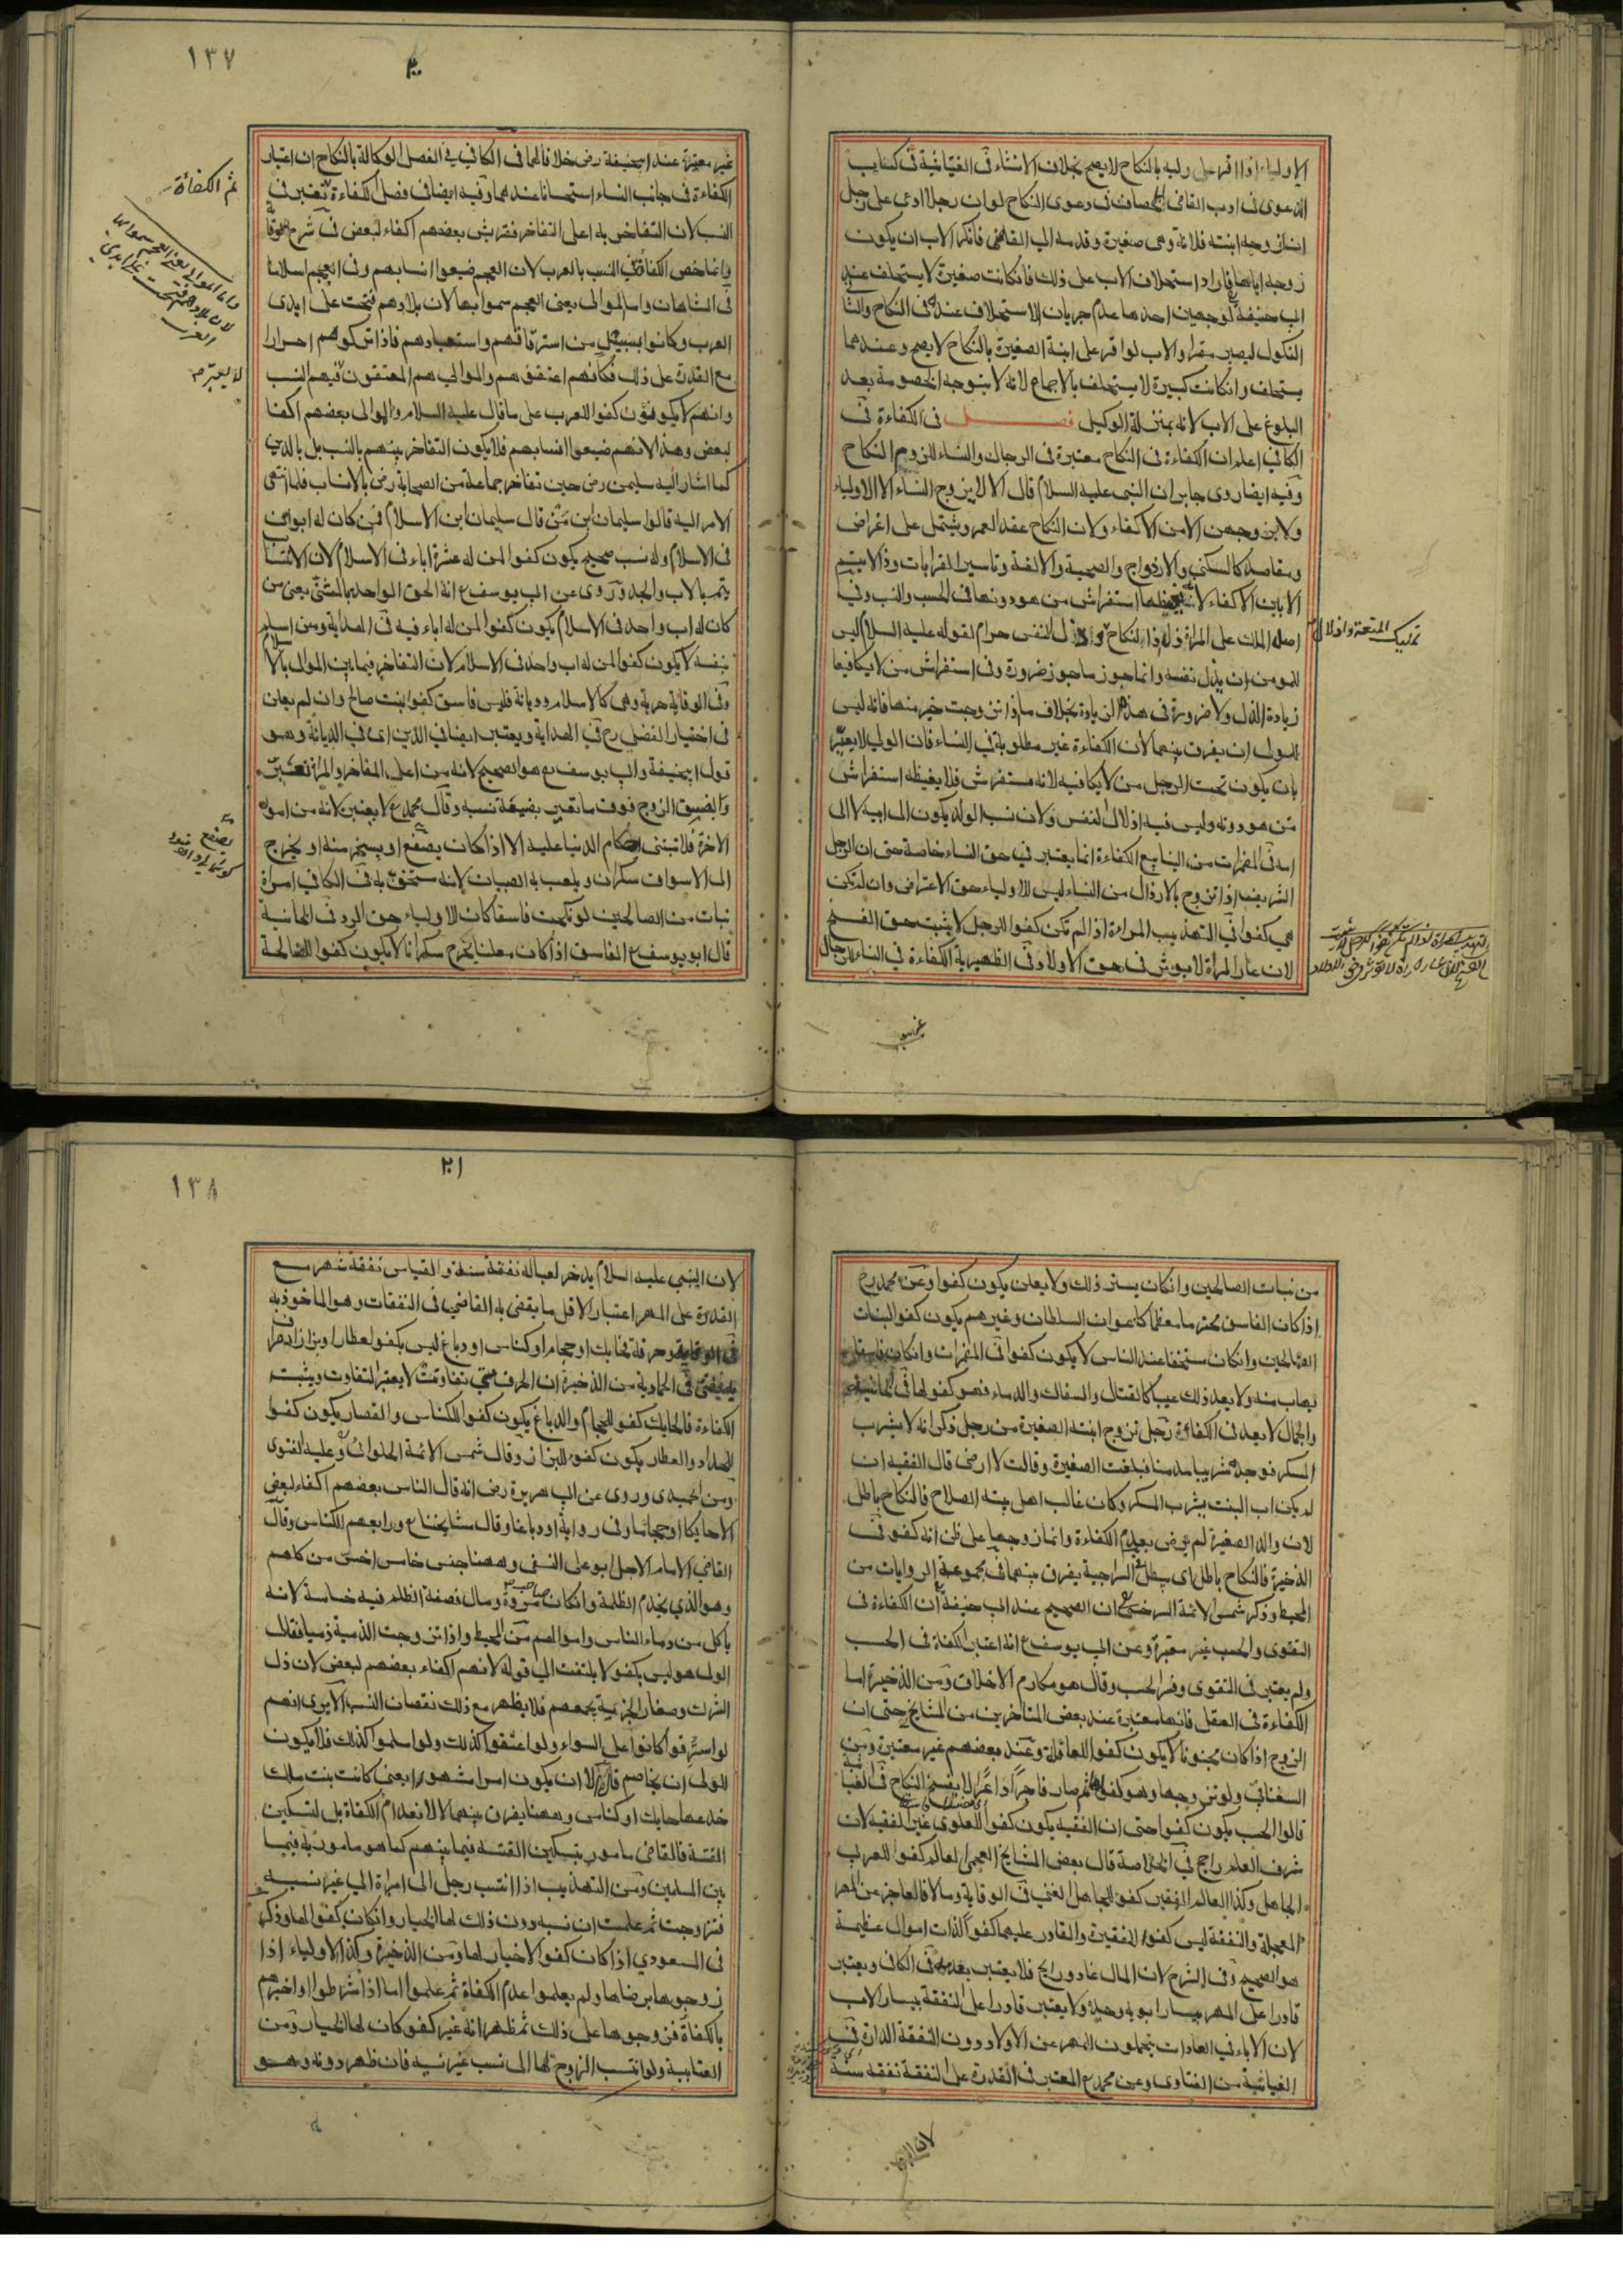 الاولياء اذا اقر على وليه بالنكاح لا يصح بخلاف الانشاء فى الغياثية فى كتاب
الدعوى فى ادب القاضى الخصاف فى دعوى النكاح لو ان رجلا ادعى على رجل
انه زوجه ابنته فلانة وهى صغيرة وقدمه الى القاضى فانكر الاب ان يكون
زوجه اياها فاراد استحلاف الاب على ذلك فان كانت صغيرة لا يستحلف عند
ابى حنيفة لوجهين احدها عدم جريان الاستحلاف عنده فى النكاح والثا
النكول ليصير مقرا والاب لو اقر على ابنة الصغيرة بالنكاح لا يصح وعندهما
يستحلف وان كانت كبيرة لا يستحلف بالاجماع لانه لا يتوجه الخصومة بعد
البلوغ على الاب لانه بمنزلة الوكيل فصل فى الكفاءة فى
الكافى اعلم ان الكفاءة فى النكاح معتبرة فى الرجال والنساء للزوم النكاح
وفيه ايضا روى جابر ان النبى عليه السلام قال الا لا يزوج النساء الا الاولياء
ولا يزوجهن الا من الاكفاء ولان النكاح عقد العمر ويشتمل على اغراض
ومقاصد كالسكنى والازدواج والصحبة والالفة وتاسيس القرابات وذا لا يتم
الا بين الاكفاء لانه يغيظها استفراش من هو دونها فى الحسب والنسب وفى
اصله الملك على المراة ذل النفس حرام لقوله عليه السلام ليس
للمومن ان يذل نفسه وانما جوز ما جوز ضرورة وفى استفراش من لا يكافيها
زيادة الذل ولا ضرورة فى هذه الزيادة بخلاف ما اذا تزوجت خير منها فانه ليس
للولى ان يفرق بينهما لان الكفاءة غير مطلوبة فى النساء فان الولى لا يعير
بان يكون تحت الرجل من لا يكافيه لانه مستفرش فلا يغيظه استفراش
من هو دونه وليس فيه اذلال النفس ولان نسب الولد يكون الى ابيه لا الى
امه فى المضمرات من الينابيع الكفاءة انما يعتبر فى حق النساء خاصة حتى ان الرجل
الشريف اذا تزوج بالارذال من النساء ليس للاولياء حق الاعتراض وان لم يكن
هى كفوا فى التهذيب المراة اذا لم تكن كفوا للرجل لا يثبت حق الفسخ
لان عار المراة لا يوثر فى حق الاولاد فى الظهيرية الكفاءة فى النساء للرجال
تمليك المتعة واذلال
غير
١٣٧
غير معتبرة عند ابى حنيفة رض خلافا لهما فى الكافى فى الفصل الوكالة بالنكاح ان اعتبار
الكفاءة فى جانب النساء استحسانا عندهما وفيه ايضا فى فصل الكفاءة تعتبر فى
النسب لان التفاخر به اعلى التفاخر فقريش بعضهم اكفاء لبعض فى شرح الوقا
وانما خص الكفاءة فى النسب بالعرب لان العجم ضيعوا انسابهم وفى العجم اسلاما
فى الشاهان واما الموالى يعنى العجم سموا بها لان بلادهم فتحت على ايدى
العرب وكانوا بسبيل من استرقاقهم واستعبادهم فاذا تركوهم احرارا
مع القدرة على ذلك فكانهم اعتقوهم والموالى هم المعتقون فيهم النسب
وانهم لا يكونون كفوا للعرب على ما قال عليه السلام والموالى بعضهم اكفا
لبعض وهذا لانهم ضيعوا انسابهم فلا يكون التفاخر بينهم بالنسب بل بالدين
كما اشار اليه سليمن رض حين تفاخر جماعة من الصحابة رض بالانساب فلما انتهى
الامر اليه قالوا سليمان ابن من قال سليمان ابن الاسلام فمن كان له ابوان
فى الاسلام وله نسب صحيح يكون كفوا لمن له عشرة اباء فى الاسلام لان الانتساب
يتم بالاب والجد وروى عن ابى يوسف ع انه الحق الواحد بالمثنى يعنى من
كان له اب واحد فى الاسلام يكون كفوا لمن له اباء فيه فى الهداية ومن اسلم
بنفسه لا يكون كفوا لمن له اب واحد فى الاسلام لان التفاخر فيما بين الموالى بالاسلام
وفى الوقاية حرية وهى كالاسلام وديانة فليس فاسق كفوا بنت صالح وان لم يعلن
فى اختيار الفضلى رح فى الهداية ويعتبر ايضا فى الدين اى فى الديانة وهو
قول ابى حنيفة وابى يوسف ع هو الصحيح لانه من اعلى المفاخر والمراة تعير
بفسق الزوج فوق ما تعير بضيعة نسبه وقال محمد ع لا يعتبر لانه من امور
الاخرة فلا تبتنى احكام الدنيا عليه الا اذا كان يصفع او يسخر منه او يخرج
الى الاسواق سكران ويلعب به الصبيان لانه مستخف به فى الكافى امراة
نبات من الصالحين لو نكحت فاسقا كان للاولياء حق الرد فى الخانية
قال ابو يوسف ع الفاسق اذا كان معلنا يخرج سكرانا لا يكون كفوا للصالحة
ثم الكفاءة
من نبات الصالحين وان كان يستر ذلك ولا يعلن يكون كفوا وعن محمد رح
اذا كان الفاسق محترما معظما كاعوان السلطان وغيرهم يكون كفوا لبنات
الصالحين وان كان مستخفا عند الناس لا يكون كفوا فى المضمرات وان كان فاسقا
يهاب منه ولا يعد ذلك عيبا كالقتال والسفاك والدماء فهو كفو لها فى الخانية
والجمال لا يعد فى الكفاءة رجل تزوج ابنته الصغيرة من رجل ذكر انه لا يشرب
المسكر فوجده شريبا مدمنا فبلغت الصغيرة وقالت لا ارضى قال الفقيه ان
لم يكن اب البنت يشرب المسكر وكان غالب اهل بيته الصلاح فالنكاح باطل
لان والد الصغيرة لم يرض بعدم الكفاءة وانما زوجها على ظن انه كفو فى
الذخيرة فالنكاح باطل اى يبطل فى السراجية يفرق بينهما فى مجموعة الروايات من
المحيط وذكر شمس الائمة السرخسى ان الصحيح عند ابى حنيفة ان الكفاءة فى
التقوى والحسب غير معتبرة وعن ابى يوسف ع انه اعتبر الكفاة فى الحسب
ولم يعتبر فى التقوى وفسر الحسب وقال هو مكارم الاخلاق ومن الذخيرة اما
الكفاءة فى العقل فانها معتبرة عند بعض المتاخرين من المشايخ حتى ان
الزوج اذا كان مجنونا لا يكون كفوا للعاقلة وعند بعضهم غير معتبرة ومن
السغناقى ولو تزوجها وهو كفو لها ثم صار فاجرا داعرا لا يفسخ النكاح فى الغيا
قالوا الحسب يكون كفوا حتى ان الفقيه يكون كفوا للعلوى غير الفقيه لان
شرف العلم راجح فى الخلاصة قال بعض المشايخ العجمى العالم كفو للعرب
الجاهل وكذا العالم الفقير كفو للجاهل الغنى فى الوقاية ومالا فالعاجز عن المهر
المعجلة والنفقة ليس كفوا للفقيرة والقادر عليهما كفو لذات اموال عظيمة
هو الصحيح وفى الشرح لان المال غاد ورايح فلا يعتبر بعده فى الكافى ويعتبر
قادرا على المهر بيسار ابويه وجده ولا يعتبر قادرا على النفقة بيسار الاب
لان الاباء فى العادات يتحملون المهر عن الاولاد دون النفقة الدارة فى
الغياثية من الفتاوى وعن محمد ع المعتبر فى القدرة على النفقة نفقة سنة
لان النبى
٢٠١
١٣٨
لان النبى عليه السلام يدخر لعياله نفقة سنة والقياس نفقة شهر مع
القدرة على المهر اعتبار الاقل ما يقضى به القاضى فى النفقات وهو الماخوذ به
فى الوقاية وحرفة فحايك او حجام او كناس او دباغ ليس بكفو لعطار او بزاز او صراف
به يفتى فى الحمادية من الذخيرة ان الحرف متى تفاوتت لا يعتبر التفاوت ويثبت
الكفاءة فالحايك كفو للحجام والدباغ يكون كفوا للكناس والقصار يكون كفوا
للحداد والعطار يكون كفو للبزاز وقال شمس الائمة الحلوانى وعليه الفتوى
وروى عن ابى هريرة رض انه قال الناس بعضهم اكفاء لبعض
الا حايكا او حجاما وفى رواية او دباغا وقال مشايخنا ع ورابعهم الكناس وقال
القاضى الامام الاجل ابو على النسفى وههنا جنس خامس اخس من كلهم
وهو الذى يخدم الظلمة وان كان صاحب مروة ومال فصفة الظلم فيه خساسة لانه
ياكل من دماء الناس واموالهم من المحيط واذا تزوجت الذمية ذميا فقال
الولى هو ليس بكفو لا يلتفت الى قوله لانهم اكفاء بعضهم لبعض لان ذل
الشرك وصغار الجزية يجمعهم فلا يظهر مع ذلك نقصان النسب الا يرى انهم
لو استرقوا كانوا على السواء ولو اعتقوا كذلك ولو اسلموا كذلك فلا يكون
للولى ان يخاصم قال الا ان يكون امرا مشهورا يعنى كانت بنت ملك
خدعها حايك او كناس وههنا يفرق بينهما لا لانعدام الكفاة بل لتسكين
الفتنة فالقاضى مامور بتسكين الفتنة فيما بينهم كما هو مامور به فيما
بين المسلمين ومن التهذيب اذا انتسب رجل الى امراة الى غير نسبه
فتزوجت ثم علمت ان نسبه دون ذلك لها الخيار وان كان كفوا لها وذكر
فى المسعودى اذا كان كفوا لا خيار لها ومن الذخيرة وكذا الاولياء اذا
زوجوها برضاها ولم يعلموا عدم الكفاة ثم علموا اما اذا شرطوا او اخبرهم
بالكفاة فزوجوها على ذلك ثم ظهر انه غير كفو كان لها الخيار ومن
العتابية ولو انتسب الزوج لها الى نسب غير نسبه فان ظهر دونه وهو